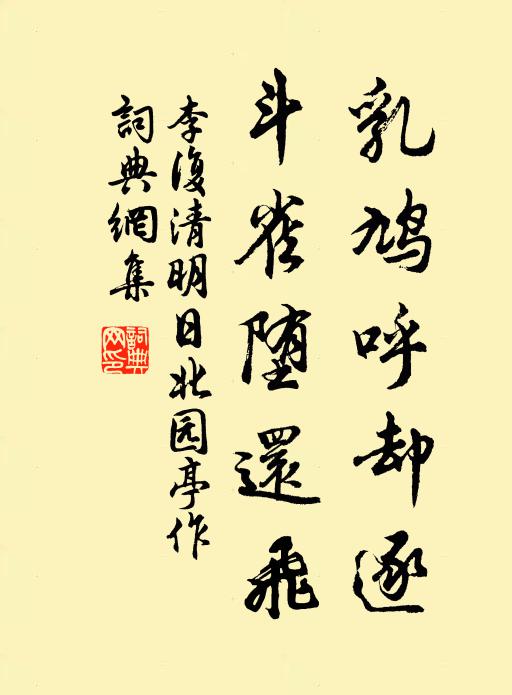 乳鸠呼却逐
斗雀堕還飛
李復清明日北园亭作
詞典網集
詞典
网印